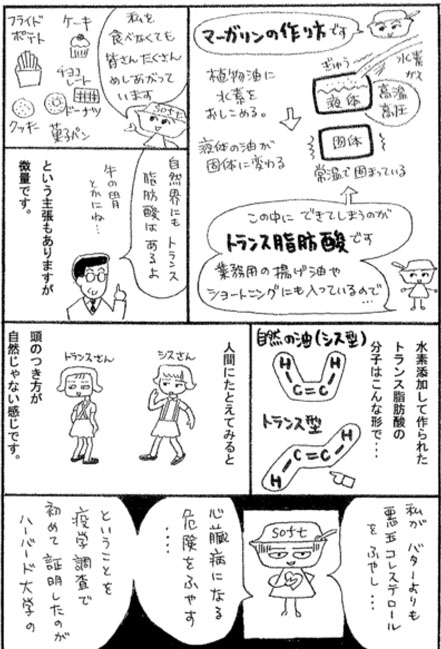 マーガリンの作り方です
植物油に
水素を
おしこめる。
ぎゅう
水素
ガス
液体
高温
高圧
液体の油が
固体に変わる
固体
常温で固まっている
この中にできてしまうのが
トランス脂肪酸です
業務用の揚げ油や
ショートニングにも入っているので
…
私を
食べなくても
皆さんたくさん
めしあがって
います
soft
フライド
ポテト
ケーキ
チョコ
レート
クッキー
ドーナツ
菓子パン
自然界にもトランス
脂肪酸はあるよ
牛の胃
とかにね…
という主張もありますが
微量です。
水素添加して作られた
トランス脂肪酸の
分子はこんな形で・・・
自然の油(シス型)
H H
C=C
トランス型
H
C=C
H
人間にたとえてみると
シスさん
トランスさん
頭のつき方が
自然じゃない感じです。
私がバターよりも
悪玉コレステロール
をふやし…
soft
心臓病になる
危険をふやす
・・・・
ということを
疫学調査で
初めて証明したのが
ハーバード大学の